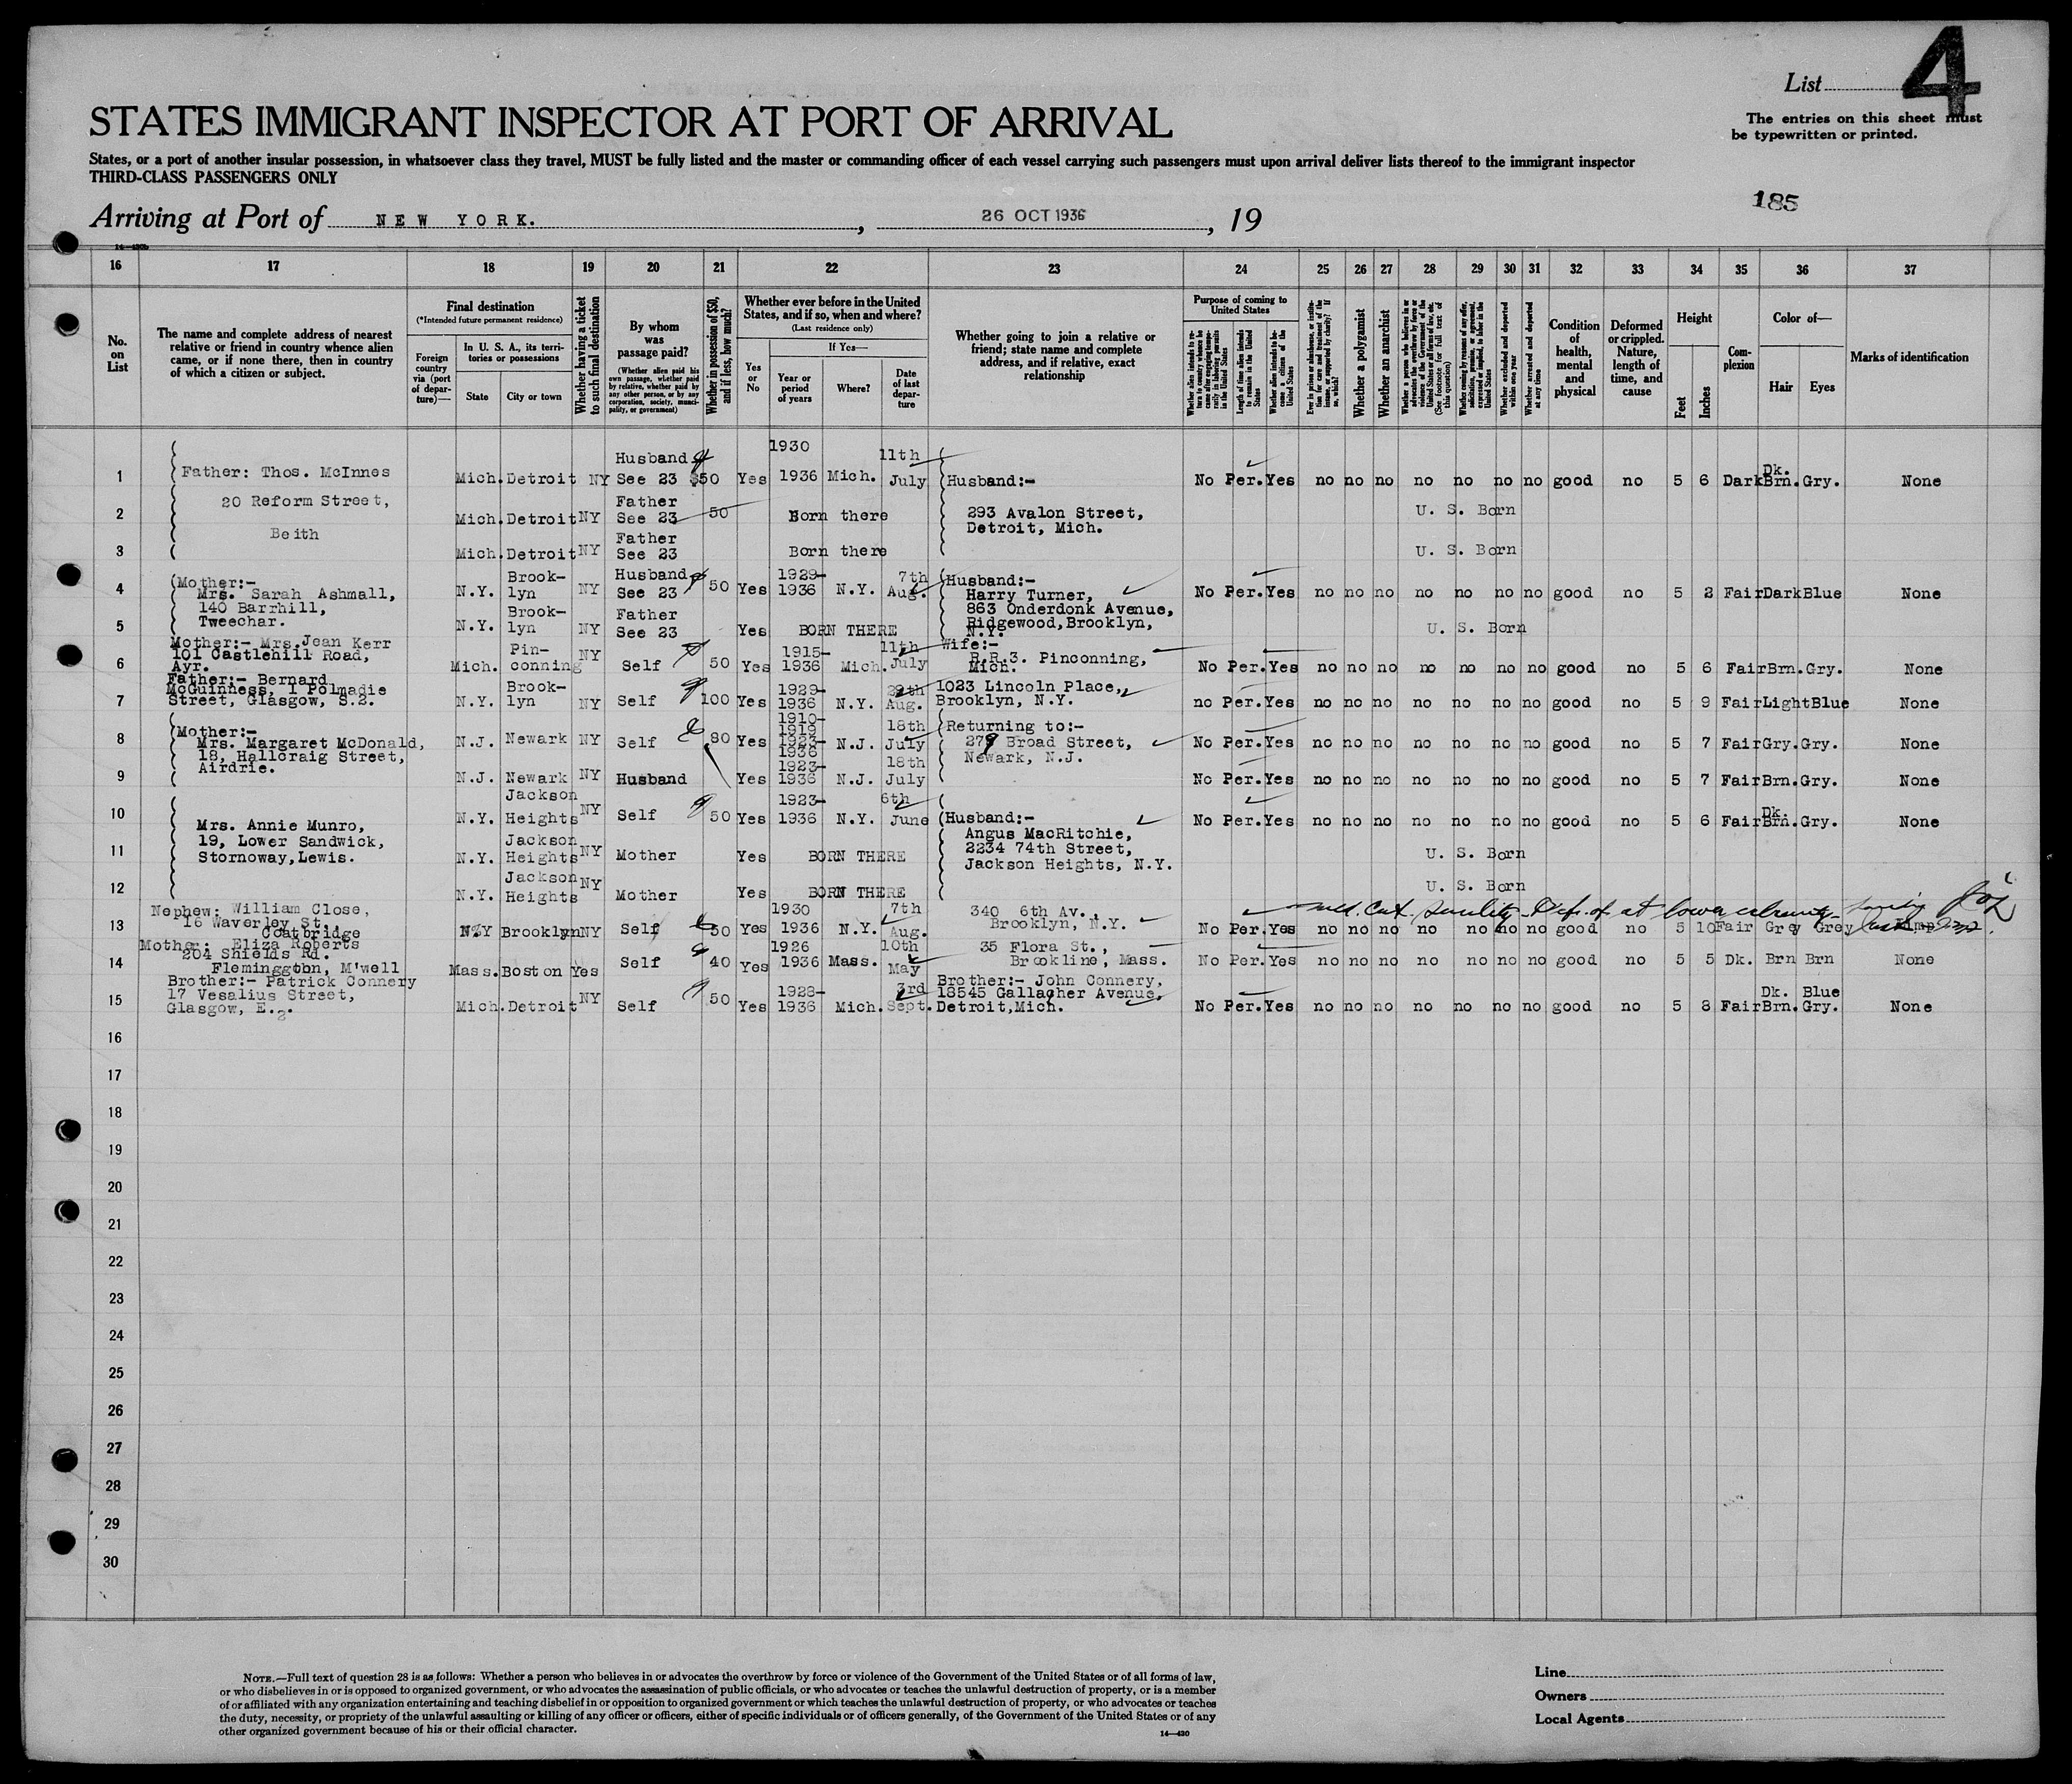 List 4
The entries on this sheet must
be typewritten or printed.
STATES IMMIGRANT INSPECTOR AT PORT OF ARRIVAL
States, or a port of another insular possession, in whatsoever class they travel, MUST be fully listed and the master or commanding officer of each vessel carrying such passengers must upon arrival deliver lists thereof to the immigrant inspector
THIRD-CLASS PASSENGERS ONLY
185
Arriving at Port of NEW YORK. , 26 OCT 1936 , 19
16 17 18 19 20 21 22 23 24 25 26 27 28 29 30 31 32 33 34 35 36 37
No. on List
The name and complete address of nearest relative or friend in country whence alien came, or if none there, then in country of which a citizen or subject.
Final destination
(*Intended future permanent residence)
Foreign country via (port of departure)—
In U. S. A., its territories or possessions
State
City or town
Whether having a ticket to such final destination
By whom was passage paid?
(Whether alien paid his own passage, whether paid by relative, whether paid by any other person, or by any corporation, society, municipality, or government)
Whether in possession of $50, and if less, how much?
Whether ever before in the United States, and if so, when and where?
(Last residence only)
Yes or No
If Yes—
Year or period of years
Where?
Date of last departure
Whether going to join a relative or friend; state name and complete address, and if relative, exact relationship
Purpose of coming to United States
Length of time alien intends to remain in the United States
Whether alien intends to become a citizen of the United States
Whether a polygamist
Whether an anarchist
Whether excluded and deported within one year
Whether arrested and deported at any time
Condition of health, mental and physical
Deformed or crippled. Nature, length of time, and cause
Height
Feet
Inches
Complexion
Color of—
Hair
Eyes
Marks of identification
1 Father: Thos. McInnes Mich. Detroit NY Husband See 23 $50 Yes 1930 1936 Mich. 11th July Husband:- No Per. Yes no no no no no no no good no 5 6 Dark Dk. Brn. Gry. None
2 20 Reform Street, Mich. Detroit NY Father See 23 50 Born there 293 Avalon Street, Detroit, Mich. U. S. Born
3 Beith Mich. Detroit NY Father See 23 Born there U. S. Born
4 Mother:- Mrs. Sarah Ashmall, 140 Barrhill, N.Y. Brook-lyn NY Husband See 23 50 Yes 1929-1936 N.Y. 7th Aug. Husband:- Harry Turner, 863 Onderdonk Avenue, No Per. Yes no no no no no no no good no 5 2 Fair Dark Blue None
5 Tweechar. N.Y. Brook-lyn NY Father See 23 Yes BORN THERE Ridgewood, Brooklyn, N.Y. U. S. Born
6 Mother:- Mrs. Jean Kerr 101 Castlehill Road, Ayr. Mich. Pin-conning NY Self 50 Yes 1915-1936 Mich. 11th July Wife:- R.R.3. Pinconning, Mich. No Per. Yes no no no no no no no good no 5 6 Fair Brn. Gry. None
7 Father:- Bernard McGuinness, 1 Polmadie Street, Glasgow, S.2. N.Y. Brook-lyn NY Self 100 Yes 1929-1936 N.Y. 29th Aug. 1023 Lincoln Place, Brooklyn, N.Y. no Per. Yes no no no no no no no good no 5 9 Fair Light Blue None
8 Mother:- Mrs. Margaret McDonald, 18, Hallcraig Street, N.J. Newark NY Self 80 Yes 1910-1919 1923-1936 N.J. 18th July Returning to:- 279 Broad Street, Newark, N.J. No Per. Yes no no no no no no no good no 5 7 Fair Gry. Gry. None
9 Airdrie. N.J. Newark NY Husband Yes 1923-1936 N.J. 18th July No Per. Yes no no no no no no no good no 5 7 Fair Brn. Gry. None
10 Mrs. Annie Munro, N.Y. Jackson Heights NY Self 50 Yes 1923-1936 N.Y. 6th June Husband:- Angus MacRitchie, No Per. Yes no no no no no no no good no 5 6 Fair Dk. Brn. Gry. None
11 19, Lower Sandwick, Stornoway, Lewis. N.Y. Jackson Heights NY Mother Yes BORN THERE 2234 74th Street, Jackson Heights, N.Y. U. S. Born
12 N.Y. Jackson Heights NY Mother Yes BORN THERE U. S. Born
13 Nephew: William Close, 16 Waverley St. Coatbridge NY Brooklyn NY Self 50 Yes 1930 1936 N.Y. 7th Aug. 340 6th Av., Brooklyn, N.Y. Med. Cert. Senility No Per. Yes no no no no no no no good no 5 10 Fair Grey Grey
14 Mother: Eliza Roberts 204 Shields Rd. Flemington, M'well Mass. Boston Yes Self 40 Yes 1926 1936 Mass. 10th May 35 Flora St., Brookline, Mass. No Per. Yes no no no no no no no good no 5 5 Dk. Brn Brn None
15 Brother:- Patrick Connery 17 Vesalius Street, Glasgow, E. Mich. Detroit NY Self 50 Yes 1928-1936 Mich. 3rd Sept. Brother:- John Connery, 18545 Gallagher Avenue, Detroit, Mich. No Per. Yes no no no no no no no good no 5 8 Fair Dk. Brn. Blue Gry. None
16
17
18
19
20
21
22
23
24
25
26
27
28
29
30
NOTE.—Full text of question 28 is as follows: Whether a person who believes in or advocates the overthrow by force or violence of the Government of the United States or of all forms of law,
or who disbelieves in or is opposed to organized government, or who advocates the assassination of public officials, or who advocates or teaches the unlawful destruction of property, or is a member
of or affiliated with any organization entertaining and teaching disbelief in or opposition to organized government or which teaches the unlawful destruction of property, or who advocates or teaches
the duty, necessity, or propriety of the unlawful assaulting or killing of any officer or officers, either of specific individuals or of officers generally, of the Government of the United States or of any
other organized government because of his or their official character.
14—420
Line
Owners
Local Agents